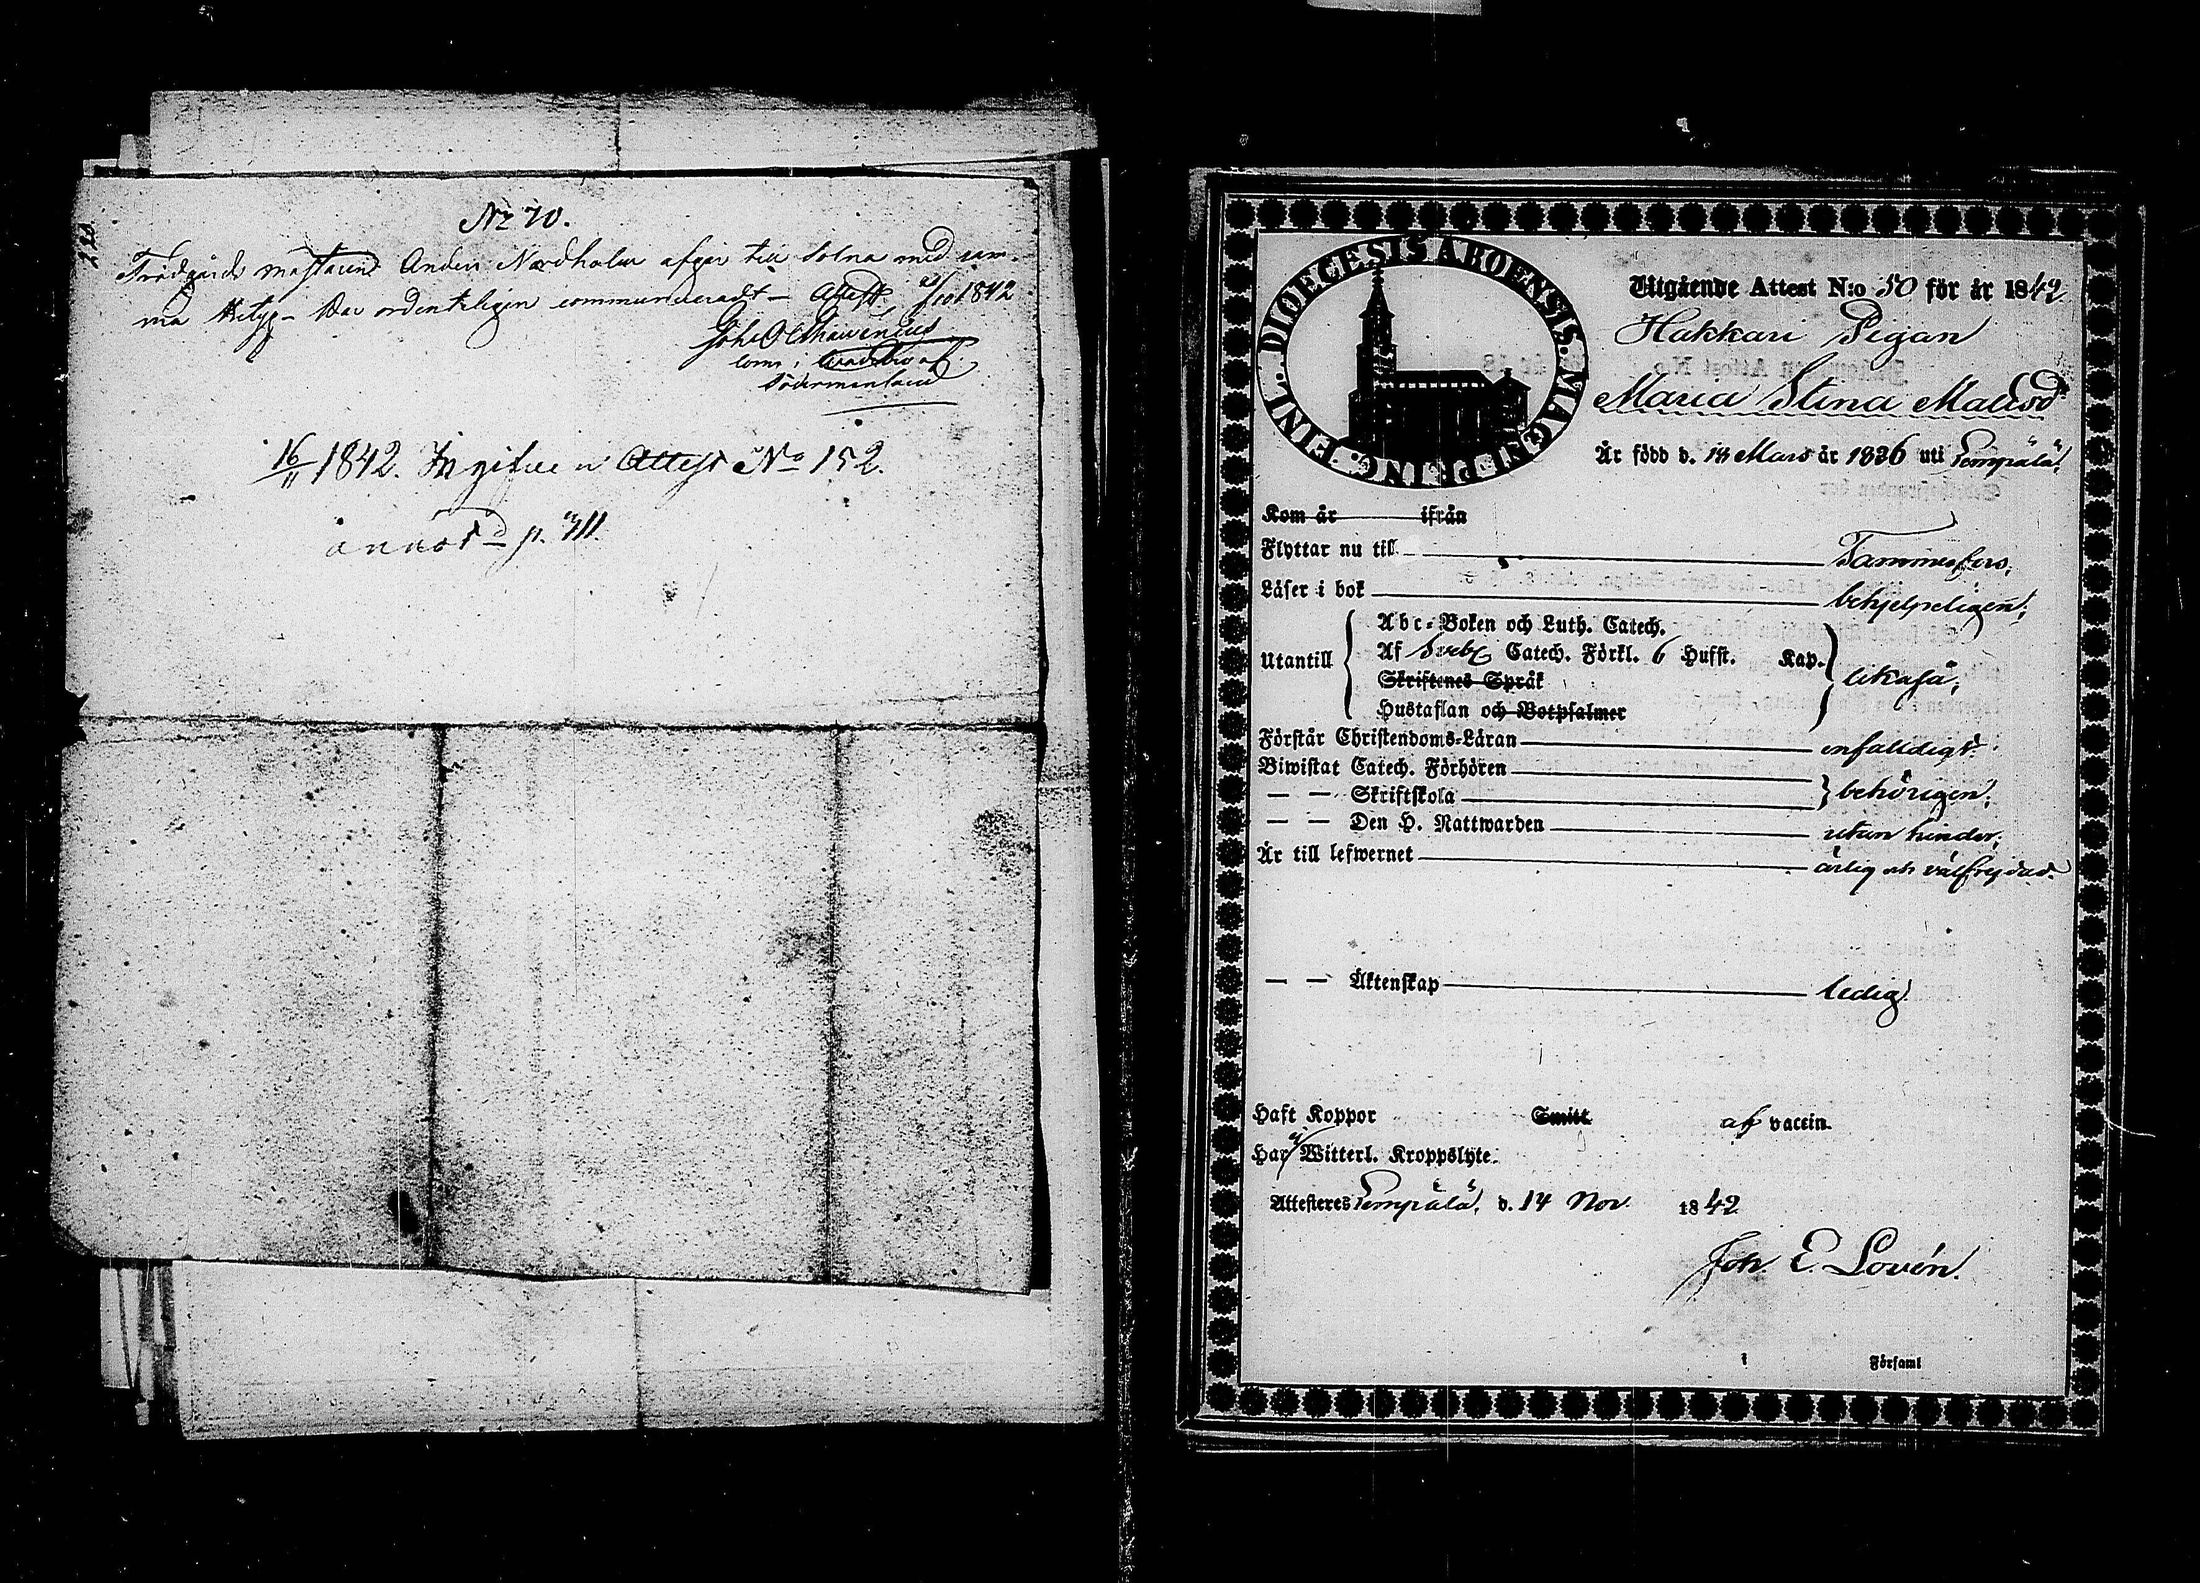 228.
No 70.
Trädgårds mästaren Anders Nordholm afgår till Solna med sam-
ma Betyg – Har ordentligen communicerat – Attest. 28/10 1842
Joh O
Com i
Södermanland
16/11 1842. Ingifven Attest No 152.
annot d p. 311.
DIOECESIS ABOENSIS. MAGN. PRINC. FINL.
Utgående Attest N:o 50 för år 1842
Hakkari Pigan
Maria Stina Matsd
Är född d. 18 Mars år 1826 uti Lempälä,
Kom år ifrån
Flyttar nu till Tammerfors,
Läser i bok behjelpeligen;
Utantill
Abc-Boken och Luth. Catech.
Af Sveb Catech. Förkl. 6 Hufst. Kap.
Skriftenes Språk
Hustaflan och Botpsalmer
likaså,
Förstår Christendoms-Läran enfaldigt.
Biwistat Catech. Förhören
— — Skriftskola behörigen;
— — Den H. Nattwarden utan hinder;
Är till lefwernet ärlig och välfrejdad.
— — Äktenskap ledig.
Haft Koppor Smitt. af vaccin.
Har ej Witterl. Kroppslyte.
Attesteres Lempälä, d. 14 Nov. 1842
Joh. E. Lovén.
i Församl